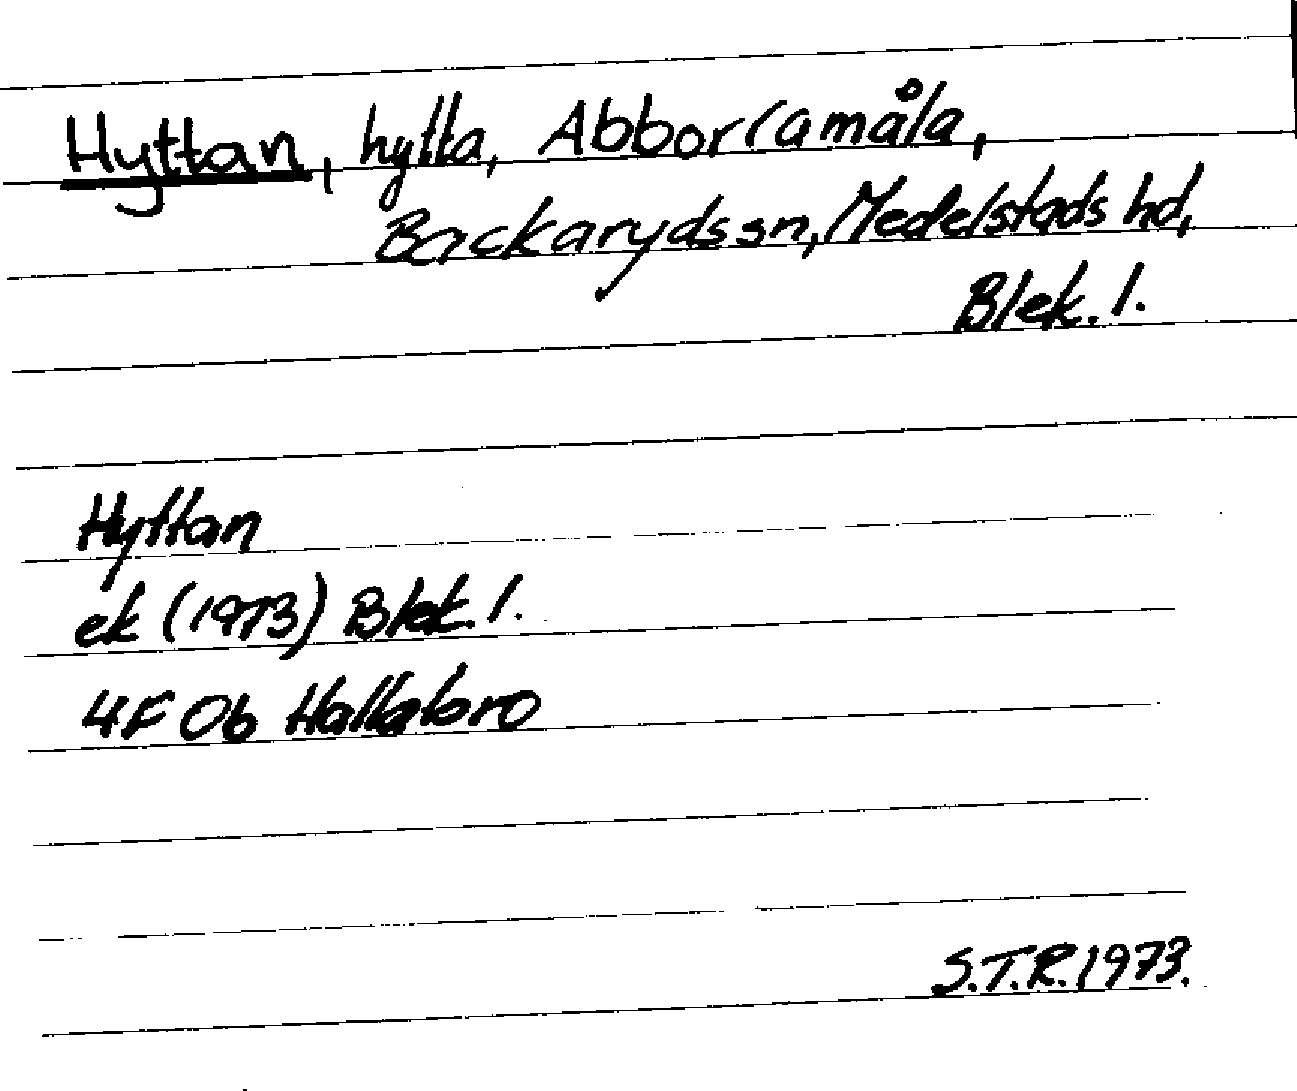 Hyttan, hytta, Abborramåla,
Backaryds sn, Medelstads hd,
Blek. l.
Hyttan
ek (1973) Blek. l.
4F 0b Hallabro
S.T.R. 1973.